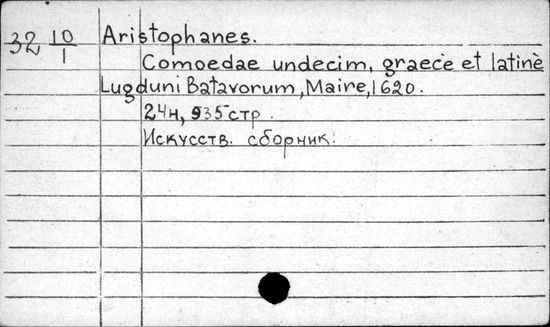 32 10/1 Aristophanes.
Comoedae undecim, graecè et latinè
Lugduni Batavorum, Maire, 1620.
24н, 935 стр.
Искусств. сборник.